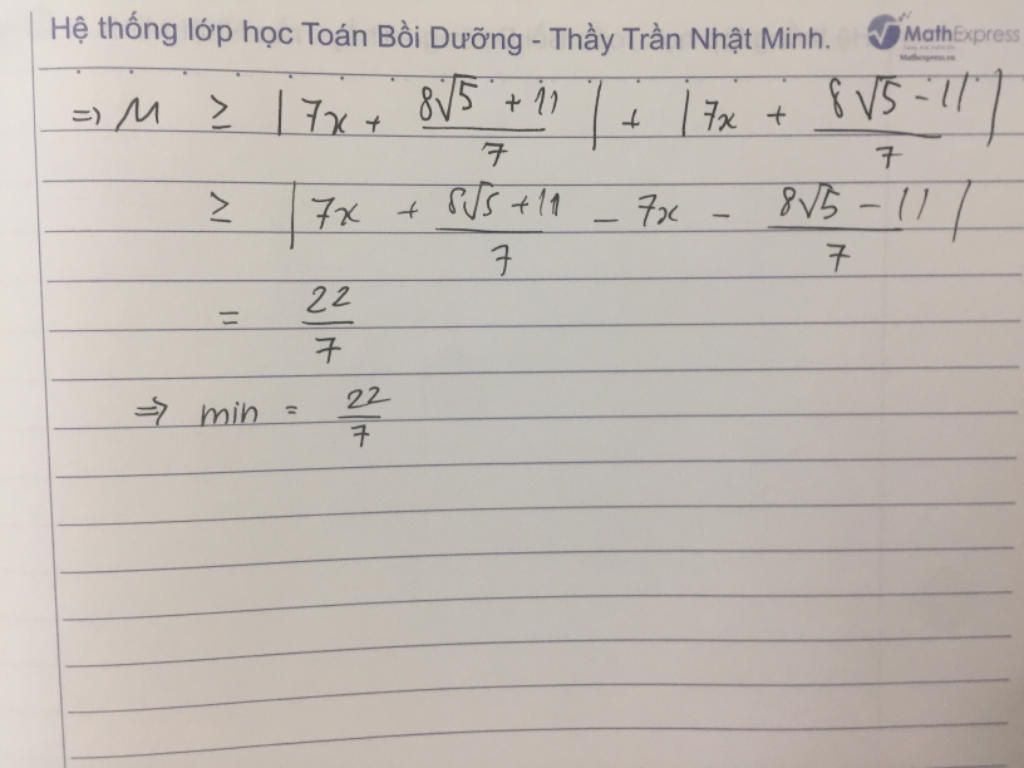 Hệ thống lớp học Toán Bồi Dưỡng - Thầy Trần Nhật Minh.
MathExpress
Mathexpress.vn
=> M ≥ |7x + (8√5 + 11)/7| + |7x + (8√5 - 11)/7|
≥ |7x + (8√5 + 11)/7 - 7x - (8√5 - 11)/7|
= 22/7
=> min = 22/7